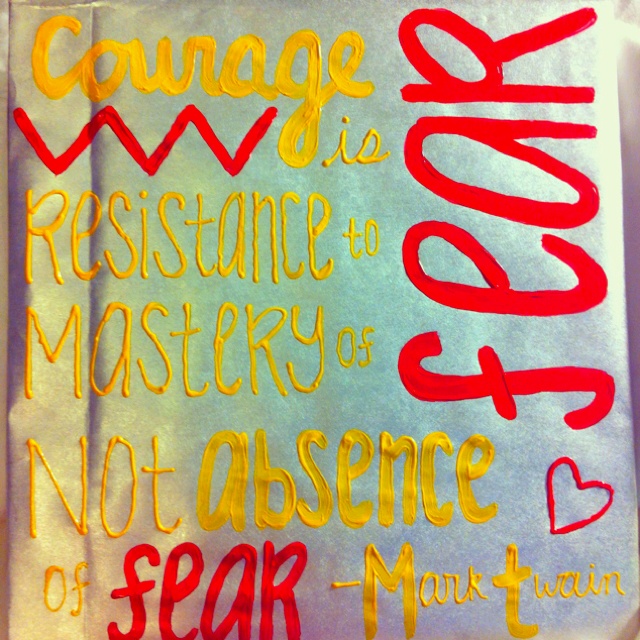 Courage
is
Resistance to
Mastery of
feaR
Not absence
of feaR - Mark twain